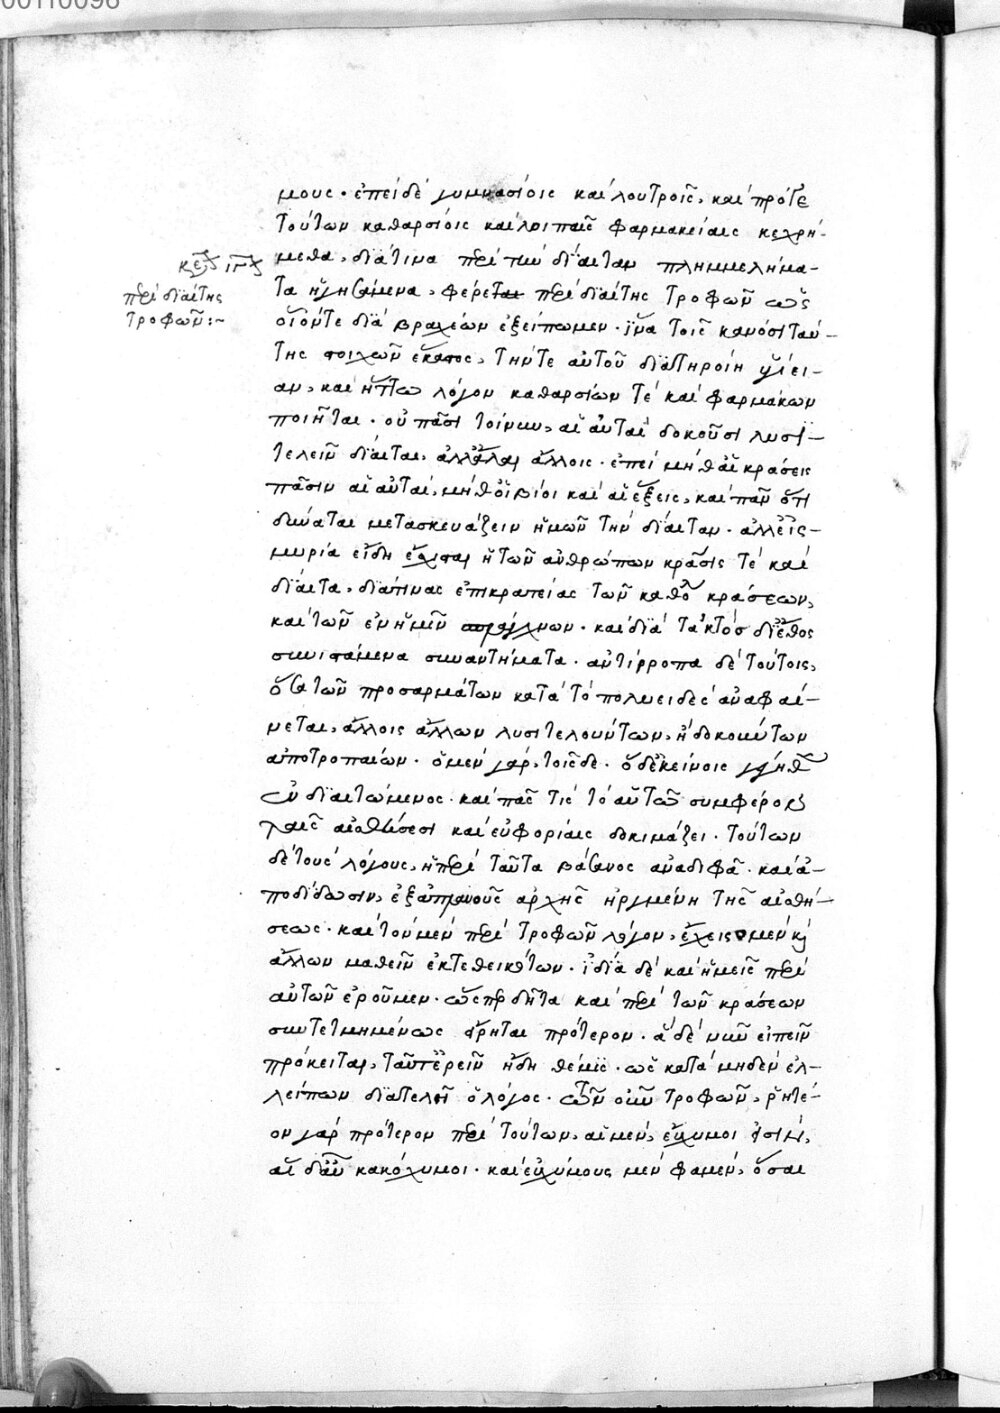 00110098
μους· ἐπεὶ δὲ γυμνασίοις καὶ λουτροῖς, καὶ πρό γε
τούτων καθαρσίοις καὶ λοιπαῖς φαρμακείαις κεχρή-
μεθα, διά τινα περὶ τὴν δίαιταν πλημμελήμα-
τα ἡγησάμενα, φέρε περὶ διαίτης τροφῶν ὡς
περὶ διαίτης
τροφῶν:~
οἷόν τε διὰ βραχέων ἐξείπωμεν· ἵνα τοῖς κανόσι ταύ-
της στοιχῶν ἕκαστος, τήν τε αὐτοῦ διατηροίη ὑγίει-
αν, καὶ ἥττω λόγον καθαρσίων τὲ καὶ φαρμάκων
ποιῆται· οὐ πᾶσι τοίνυν, αἱ αὐταὶ δοκοῦσι λυσι-
τελεῖν δίαιται, ἀλλ' ἄλλαι ἄλλοις· ἐπεὶ μήθ' αἱ κράσεις
πᾶσιν αἱ αὐταὶ, μήθ' οἱ βίοι καὶ αἱ ἕξεις, καὶ πᾶν ὅτι
δύναται μετασκευάζειν ἡμῶν τὴν δίαιταν· ἀλλ' εἰς
μυρία εἴδη ἔσχισται ἡ τῶν ἀνθρώπων κρᾶσις τὲ καὶ
δίαιτα, διά τινας ἐπικρατείας τῶν καθ' κράσεων,
καὶ τῶν ἐν ἡμῖν · καὶ διὰ τἀκτὸς δι' ἔθος
συνιστάμενα συναντήματα· ἀντίρροπα δὲ τούτοις,
ὅσα τῶν προσαρμάτων κατὰ τὸ πολυειδὲς ἀναφαί-
νεται, ἄλλοις ἄλλων λυσιτελούντων, ἢ δοκούντων
ἀποτροπαίων· ὁ μὲν γὰρ, τοῖσδε· ὁ δ' ἐκείνοις
εὖ διαιτώμενος· καὶ πᾶς τις τὸ αὑτῷ συμφέρον
ταῖς αἰσθήσεσι καὶ εὐφορίαις δοκιμάζει· τούτων
δὲ τοὺς λόγους, ἡ περὶ ταῦτα βάσανος ἀναδιφᾷ· καὶ ἀ-
ποδίδωσιν, ἐξ ἀρχῆς ἠργμένη τῆς αἰσθή-
σεως· καὶ τὸν μὲν περὶ τροφῶν λόγον, ἔχεις μὲν κἀξ
ἄλλων μαθεῖν ἐκτεθεικότων· ἰδίᾳ δὲ καὶ ἡμεῖς περὶ
αὐτῶν ἐροῦμεν· ὥσπερ δῆτα καὶ περὶ τῶν κράσεων
συντετμημένως εἴρηται πρότερον· ἃ δὲ νῦν εἰπεῖν
πρόκειται, ταῦτ' ἐρεῖν ἤδη θέμις· ὡς κατὰ μηδὲν ἐλ-
λείπων διατελοῖ ὁ λόγος· τῶν οὖν τροφῶν, ῥητέ-
ον γὰρ πρότερον περὶ τούτων, αἱ μὲν, εὔχυμοι εἰσὶν,
αἱ δ' αὖ κακόχυμοι· καὶ εὐχύμους μὲν φαμὲν, ὅσαι